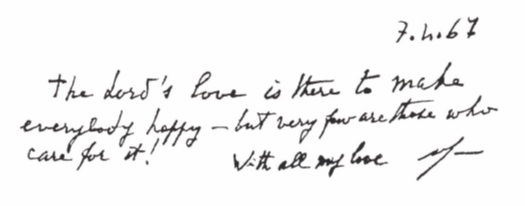 7.4.67
The Lord's love is there to make
everybody happy – but very few are those who
care for it!
With all my love